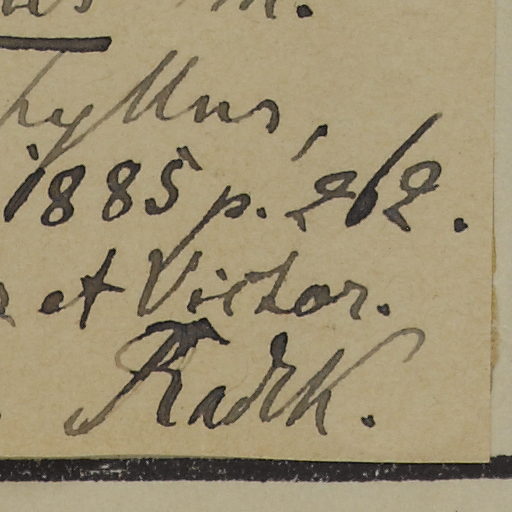 m.
hyllus,
1885 p. 262.
et Victor.
Radlk.